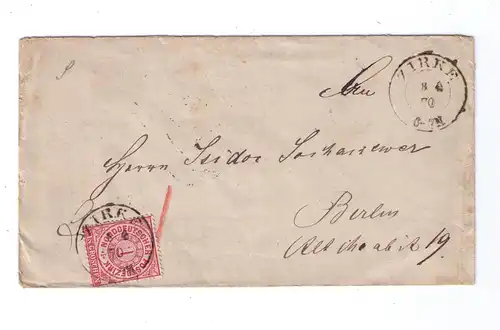 ZIRKE
8 4
70
6-7N
An
Herrn Isidor Sochaczewer
Berlin
Alt Moabit 19.
ZIRKE
NORDDEUTSCHER
POSTBEZIRK
1